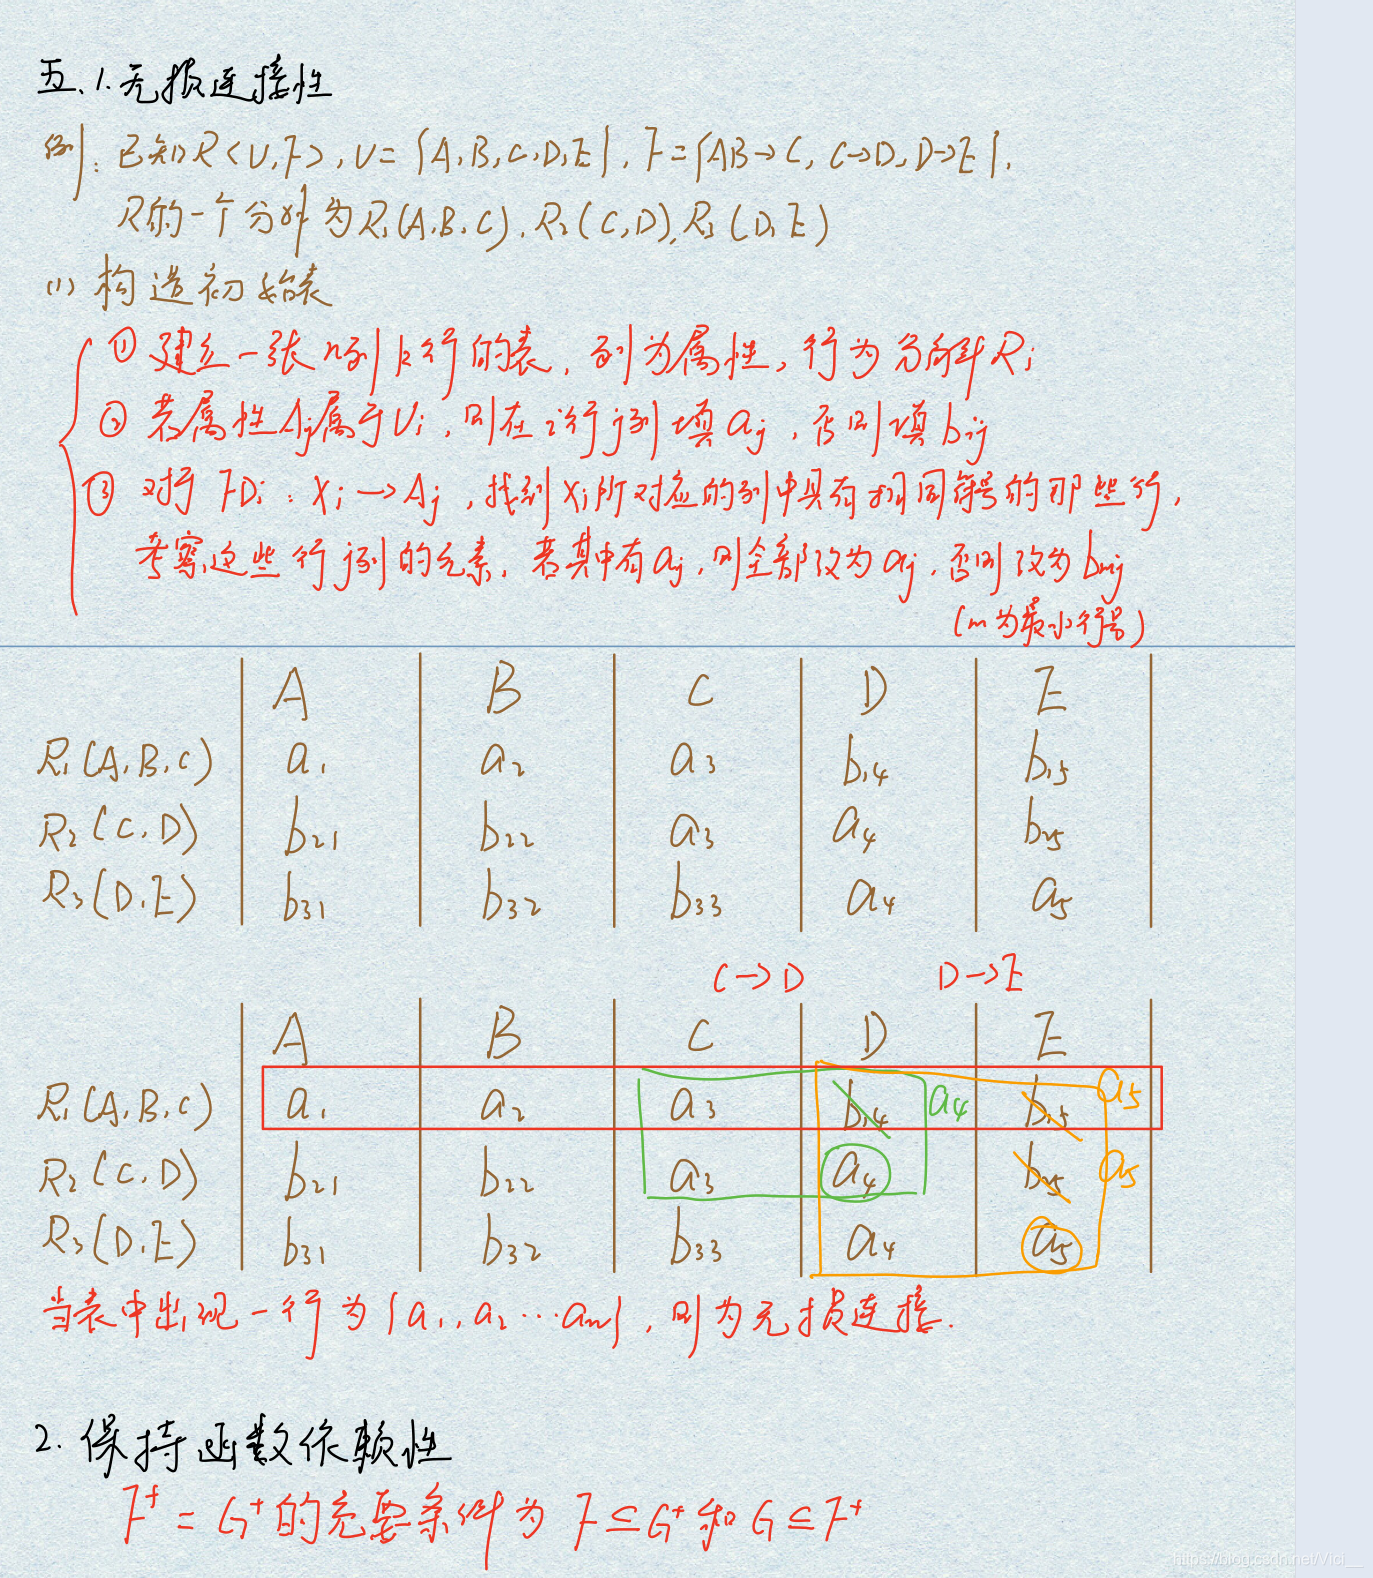 五、1.无损连接性
例：已知R<U,F>,U={A,B,C,D,E},F={AB→C,C→D,D→E},
R的一个分解为R₁(A,B,C),R₂(C,D),R₃(D,E)
(1) 构造初始表
① 建立一张n列k行的表，列为属性，行为分解Ri
② 若属性Aj属于Ui，则在i行j列填aj，否则填bij
③ 对于FDi：Xi→Aj，找到Xi所对应的列中具有相同符号的那些行，
考察这些行j列的元素，若其中有aj，则全部改为aj，否则改为bmj
(m为最小行号)
A B C D E
R₁(A,B,C) a₁ a₂ a₃ b₁₄ b₁₅
R₂(C,D) b₂₁ b₂₂ a₃ a₄ b₂₅
R₃(D,E) b₃₁ b₃₂ b₃₃ a₄ a₅
C→D D→E
A B C D E
R₁(A,B,C) a₁ a₂ a₃ b₁₄ a₄ b₁₅ a₅
R₂(C,D) b₂₁ b₂₂ a₃ a₄ b₂₅ a₅
R₃(D,E) b₃₁ b₃₂ b₃₃ a₄ a₅
当表中出现一行为{a₁,a₂…an}，则为无损连接.
2.保持函数依赖性
F⁺=G⁺的充要条件为 F⊆G⁺和G⊆F⁺
https://blog.csdn.net/Vici__